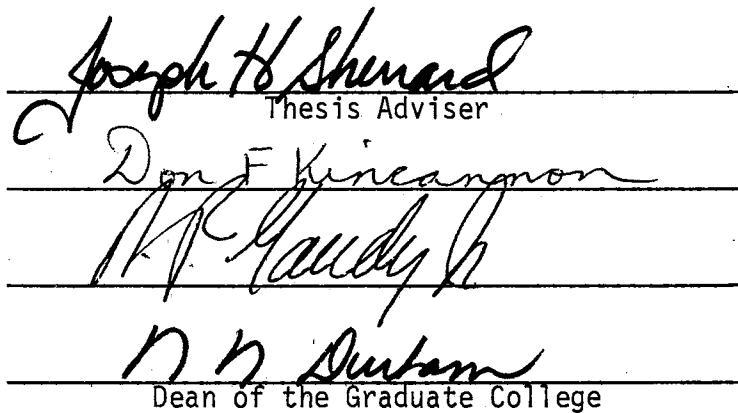 Joseph H Sherrard
Thesis Adviser
Don F Kincannon
A. F. Gaudy Jr
N N Durham
Dean of the Graduate College